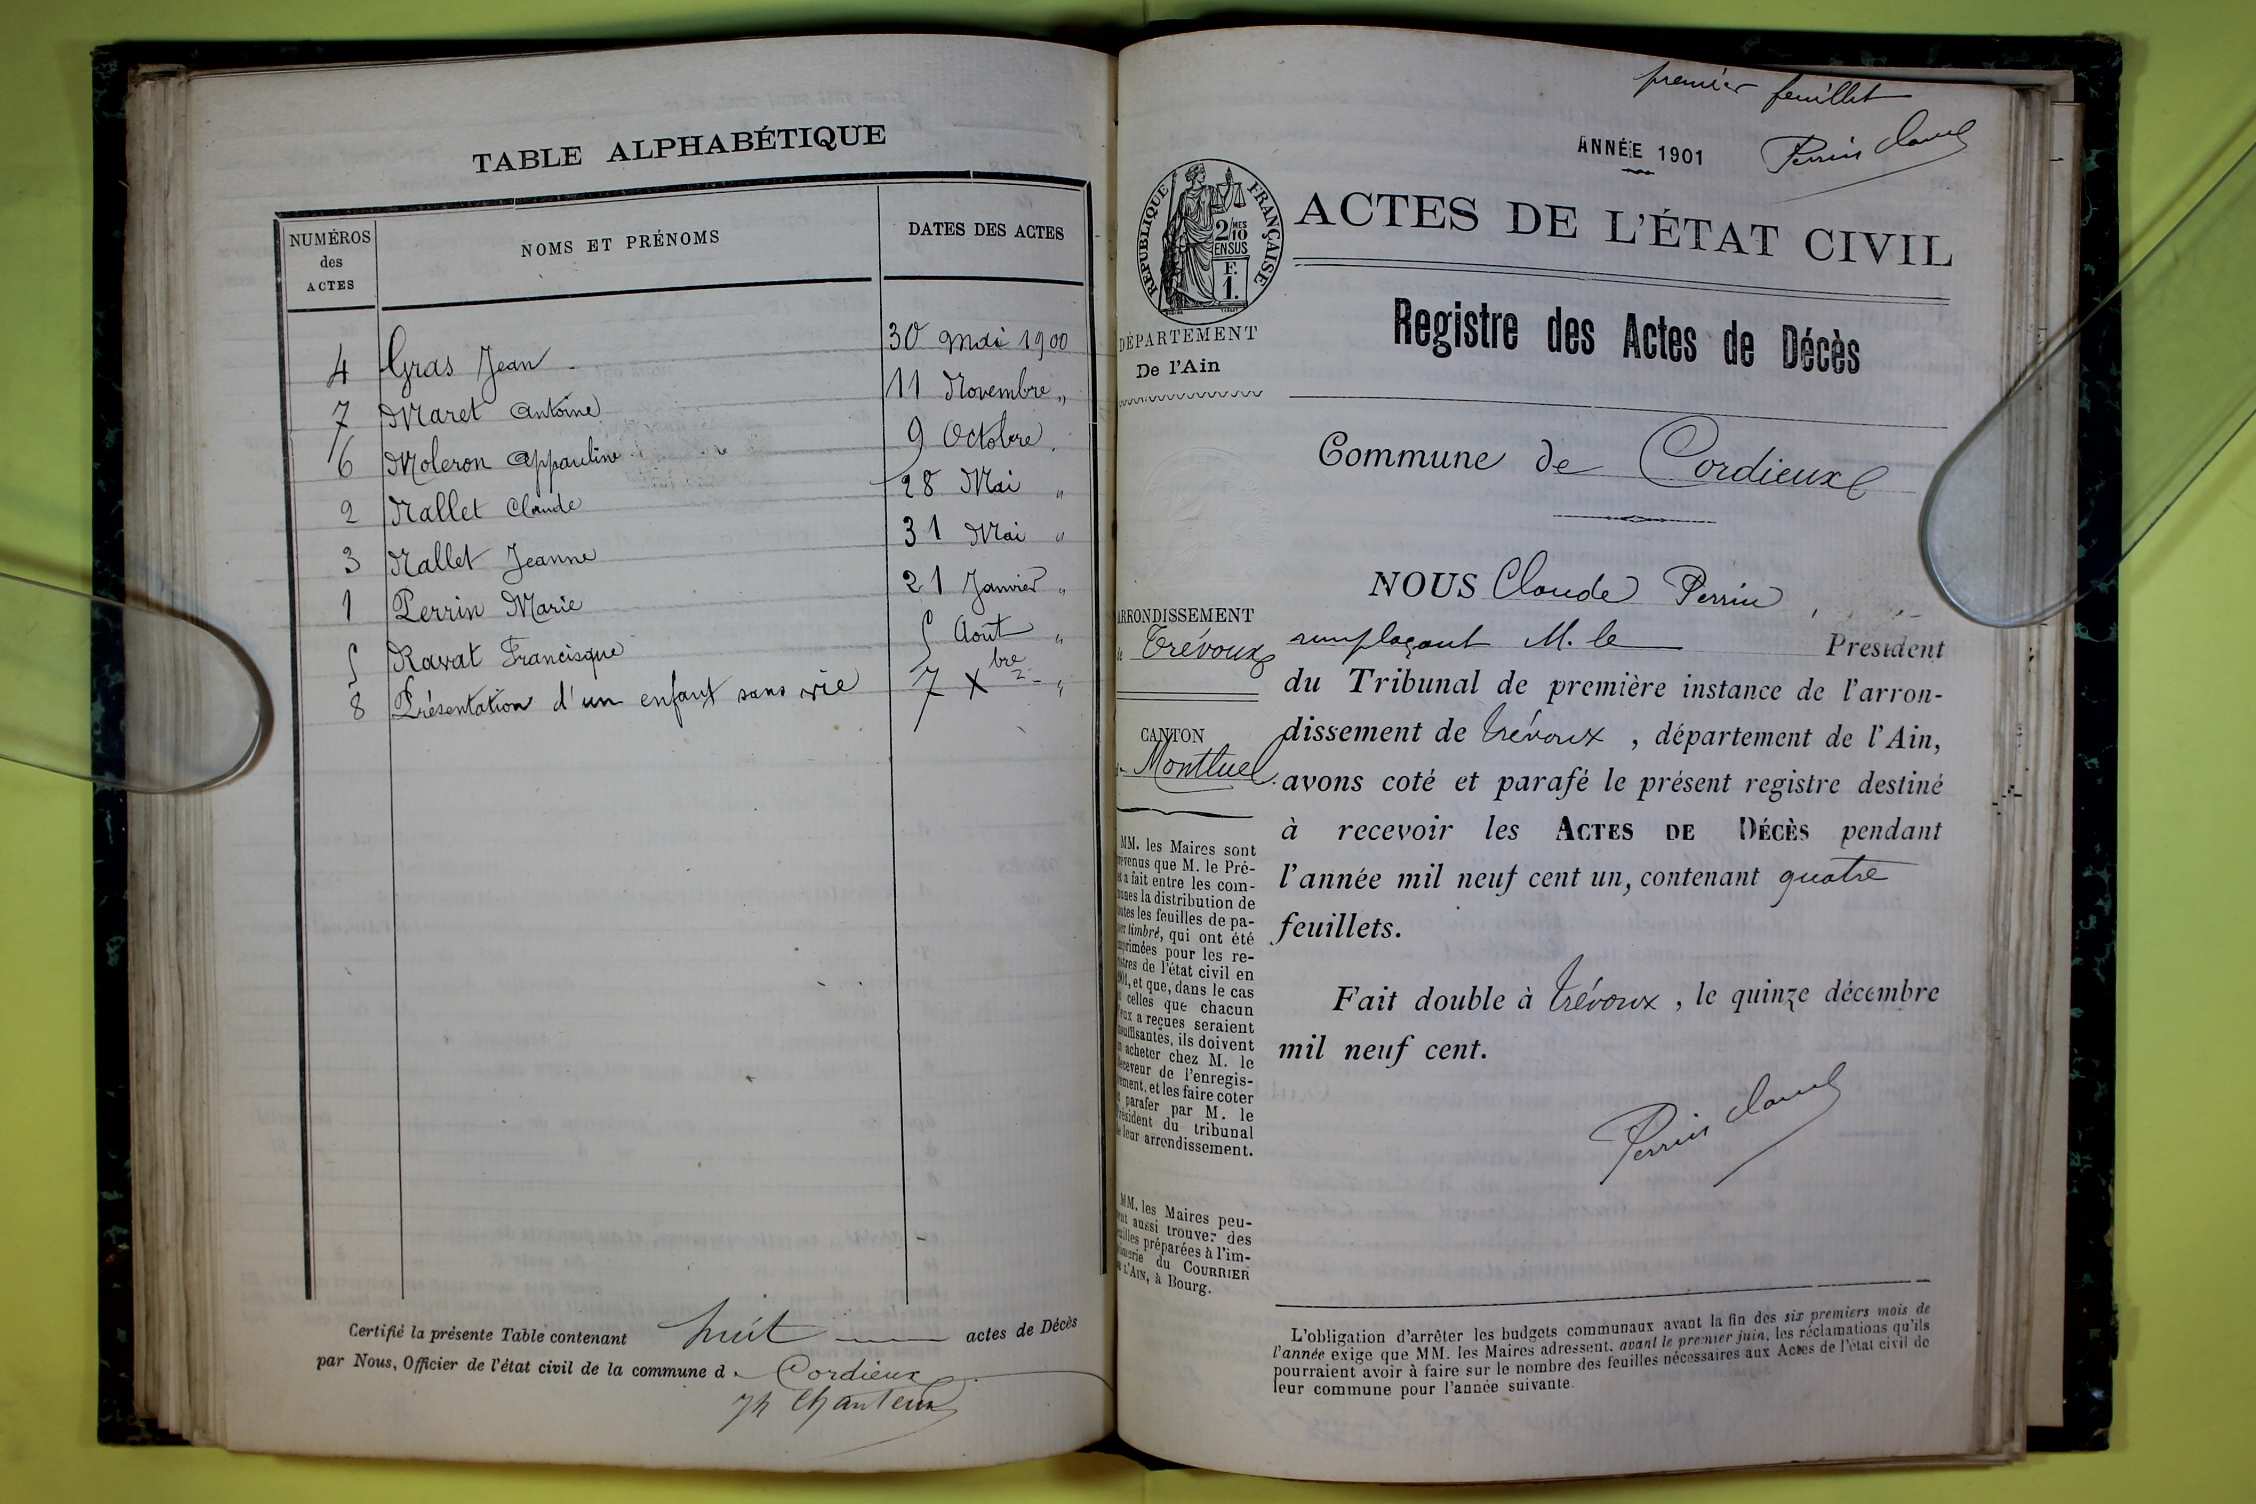 TABLE ALPHABÉTIQUE
NUMÉROS des ACTES
NOMS ET PRÉNOMS
DATES DES ACTES
4 Gras Jean 30 Mai 1900
7 Maret Antoine 11 Novembre „
6 Moleron Appauline 9 Octobre
2 Nallet Claude 28 Mai „
3 Nallet Jeanne 31 Mai „
1 Perrin Marie 21 Janvier „
5 Ravat Francisque 5 Août „
8 Présentation d'un enfant sans vie 7 Xbre „
Certifié la présente Table contenant huit actes de Décès
par Nous, Officier de l'état civil de la commune d Cordieux
premier feuillet
ANNÉE 1901
Perrin Claude
RÉPUBLIQUE FRANÇAISE
2/10 MES
EN SUS
F.
1.
ACTES DE L'ÉTAT CIVIL
Registre des Actes de Décès
DÉPARTEMENT
De l'Ain
Commune de Cordieux
ARRONDISSEMENT
de Trévoux
CANTON
Montluel
MM. les Maires sont
prévenus que M. le Pré-
fet a fait entre les com-
munes la distribution de
toutes les feuilles de pa-
pier timbré, qui ont été
imprimées pour les re-
gistres de l'état civil en
1901, et que, dans le cas
où celles que chacun
d'eux a reçues seraient
insuffisantes, ils doivent
en acheter chez M. le
Receveur de l'enregis-
trement, et les faire coter
et parafer par M. le
Président du tribunal
de leur arrondissement.
MM. les Maires peu-
vent aussi trouver des
feuilles préparées à l'im-
primerie du COURRIER
DE L'AIN, à Bourg.
NOUS Claude Perrin,
remplaçant M. le Président
du Tribunal de première instance de l'arron-
dissement de Trévoux, département de l'Ain,
avons coté et parafé le présent registre destiné
à recevoir les ACTES DE DÉCÈS pendant
l'année mil neuf cent un, contenant quatre
feuillets.
Fait double à Trévoux, le quinze décembre
mil neuf cent.
Perrin Claude
L'obligation d'arrêter les budgets communaux avant la fin des six premiers mois de
l'année exige que MM. les Maires adressent, avant le premier juin, les réclamations qu'ils
pourraient avoir à faire sur le nombre des feuilles nécessaires aux Actes de l'état civil de
leur commune pour l'année suivante.